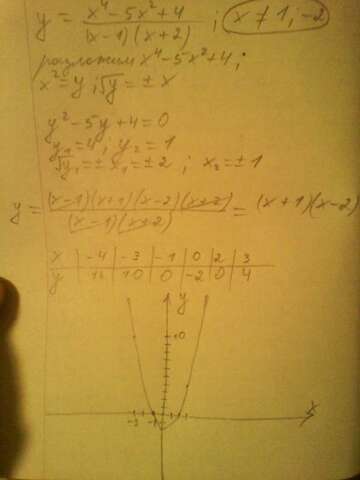 y = x⁴ - 5x² + 4 / (x-1)(x+2) ; x ≠ 1; -2
разложим x⁴ - 5x² + 4;
x² = y; √y = ± x
y² - 5y + 4 = 0
y₁ = 4; y₂ = 1
√y₁ = ± x₁ = ± 2 ; x₂ = ± 1
y = (x-1)(x+1)(x-2)(x+2) / (x-1)(x+2) = (x+1)(x-2)
x | -4 | -3 | -1 | 0 | 2 | 3
y | | 10 | 0 | -2 | 0 | 4
y
10
x
-3 -1